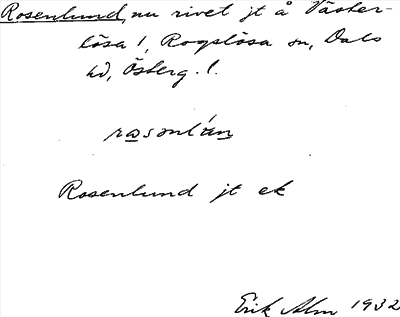 Rosenlund, nu rivet jt å Väster-
lösa 1, Rogslösa sn, Dals
hd, Österg. l.
Rosenlund jt ek
Erik Alm 1932